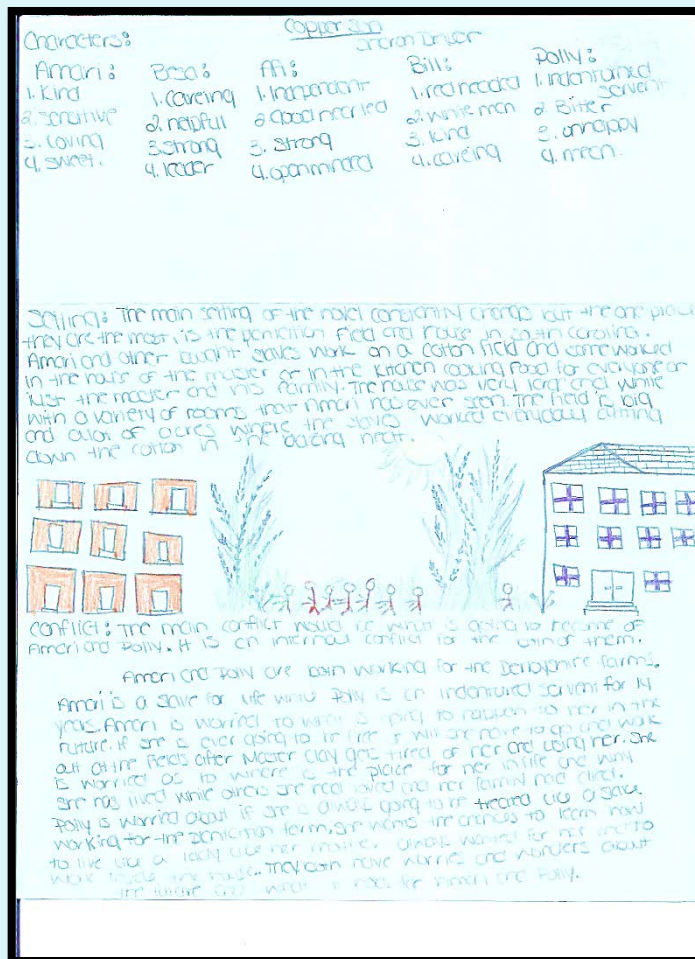 Copper Sun
Sharon Draper
Characters:
Amari: Besa: Afi: Bill: Polly:
1. Kind 1. careing 1. Independent 1. redheaded 1. Indentured servent
2. sensitive 2. helpful 2. Good hearted 2. white man 2. Bitter
3. loving 3. strong 3. strong 3. kind 3. unhappy
4. sweet. 4. leader 4. openminded 4. careing 4. mean.
Setting: The main setting of the novel constantly change but the one place
they are the most, is the plantation field and house in South Carolina.
Amari and other slaves work on a cotton field and some worked
in the house of the master or in the kitchen cooking food for everyone or
just the master and his family. The house was very long and white
with a variety of rooms that Amari has ever seen. The field is big
and of acres where the slaves worked everyday cutting
down the cotton in the heat.
conflict: The main conflict would be what is going to become of
Amari and Polly. It is an internal conflict for the of them.
Amari and Polly are both working for the farms.
Amari is a slave for life while Polly is an indentured servent for 14
years. Amari is worried to what is going to happen to her in the
future. If she is ever going to be free or will she have to go and work
out at the fields after Master Clay get tired of her and using her. She
is worried as to where is the place for her in life and why
she has lived while others she had loved and her family had died.
Polly is worried about if she is always going to be treated like a slave.
working for the plantation farm, she wants the chances to learn how
to live like a lady like her mother always wanted for her and to
work inside the house. They both have worries and wonders about
the future and what it holds for Amari and Polly.